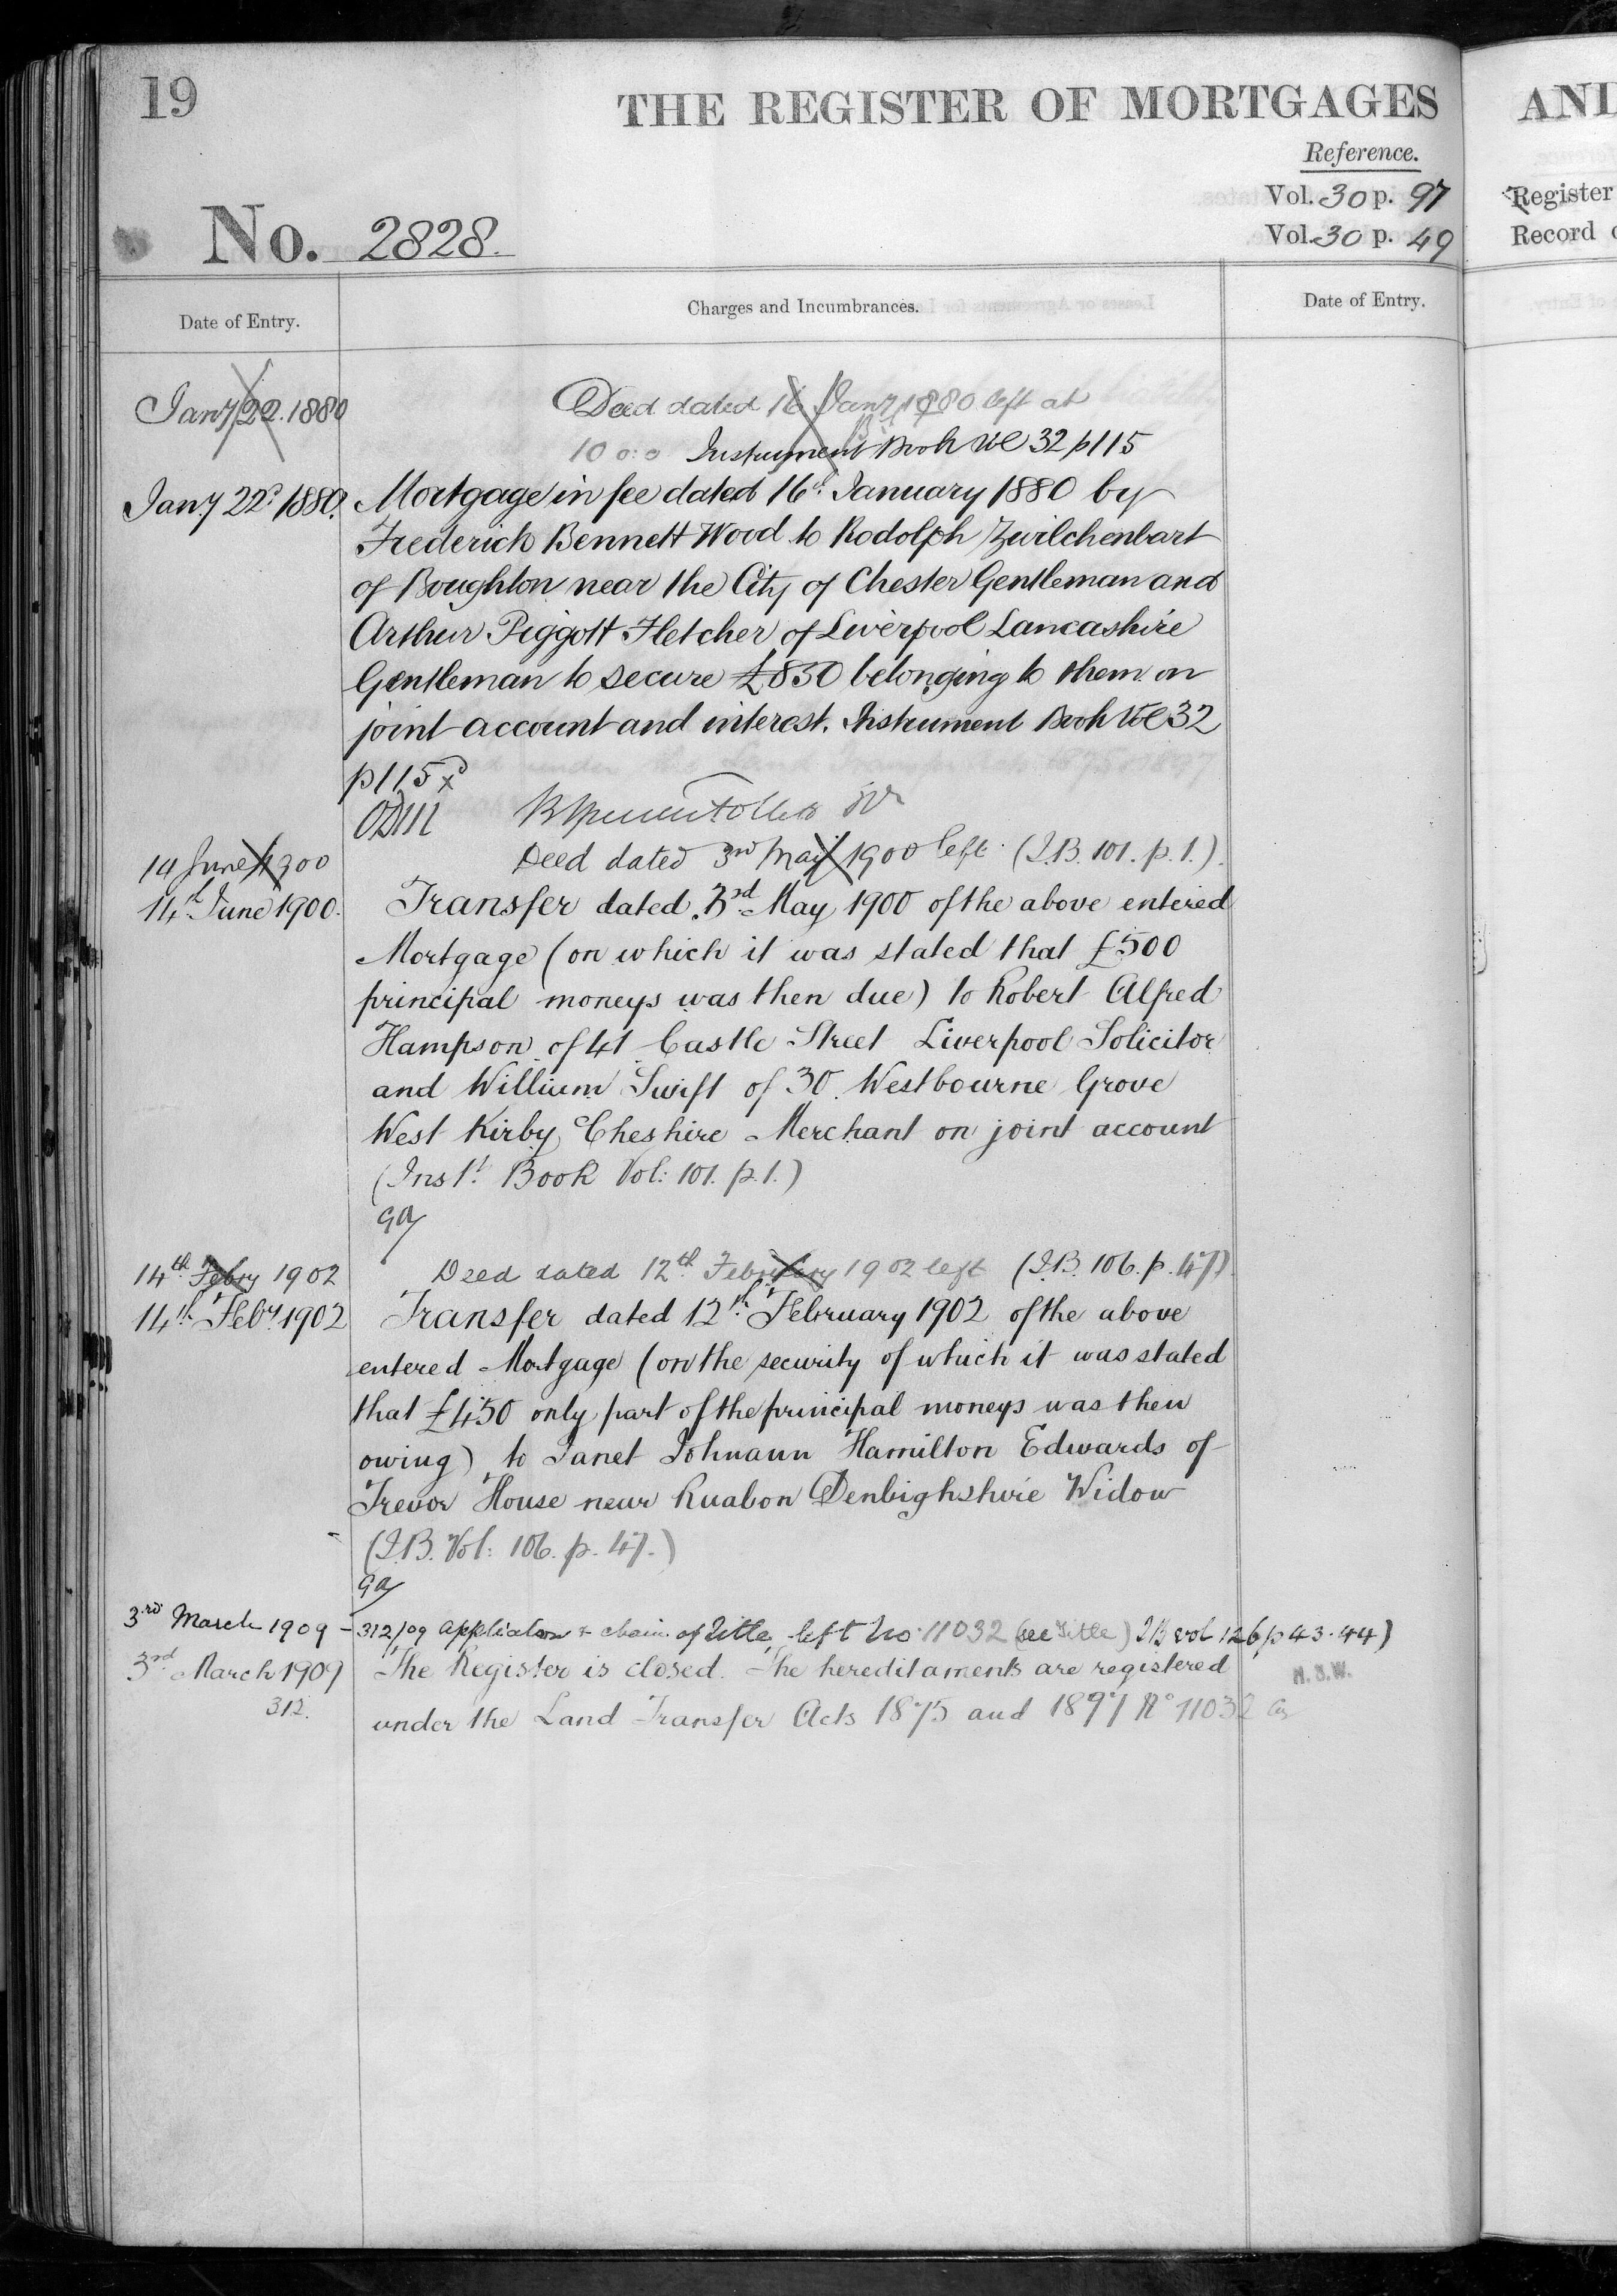 19
THE REGISTER OF MORTGAGES
AND
Reference.
Vol. 30 p. 97
Register
No. 2828.
Vol. 30 p. 49
Record
Date of Entry.
Charges and Incumbrances.
Date of Entry.
Jany 22. 1880
Deed dated 16 Jany 1880 left at
10 o: o Instrument Book Vol 32 p115
Jany 22d 1880.
Mortgage in fee dated 16th January 1880 by
Frederick Bennett Wood to Rodolph Zwilchenbart
of Boughton near the City of Chester Gentleman and
Arthur Piggott Fletcher of Liverpool Lancashire
Gentleman to secure £850 belonging to them on
joint account and interest. Instrument Book Vol 32
p115
14 June 1900
Deed dated 3rd May 1900 left (I.B. 101. p. 1.).
14th June 1900.
Transfer dated 3rd May 1900 of the above entered
Mortgage (on which it was stated that £500
principal moneys was then due) to Robert Alfred
Hampson of 41 Castle Street Liverpool Solicitor
and William Swift of 30 Westbourne Grove
West Kirby Cheshire Merchant on joint account
(Inst. Book Vol: 101. p. 1.)
14th Febry 1902
Deed dated 12th February 1902 left (I.B. 106. p. 47).
14th Feby 1902
Transfer dated 12th February 1902 of the above
entered Mortgage (on the security of which it was stated
that £450 only part of the principal moneys was then
owing) to Janet Johnann Hamilton Edwards of
Trevor House near Ruabon Denbighshire Widow
(I.B. Vol: 106. p. 47.)
3rd March 1909 -
312/09 Application & chain of Title left No. 11032 (see Title) I B vol 126 p 43.44)
3rd March 1909
The Register is closed. The hereditaments are registered
H.J.W.
312.
under the Land Transfer Acts 1875 and 1897 No 11032